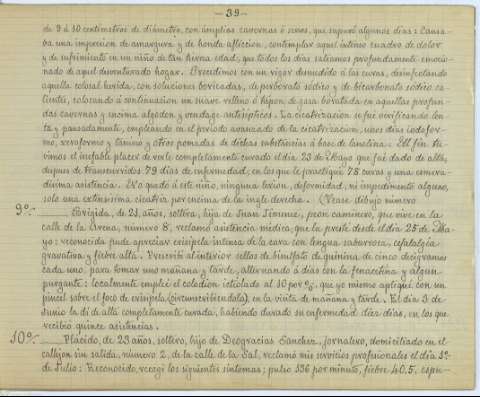 — 39 —
de 9 á 10 centímetros de diámetro, con ámplias cavernas ó senos, que supuró algunos dias: Causa-
ba una impresion de amargura y de honda afliccion, contemplar aquel intenso cuadro de dolor
y de sufrimiento en un niño de tan tierna edad, que todos los dias saliamos profundamente emocio-
nado de aquel desventurado hogar. Procedimos con un rigor desmedido á las curas, desinfectando
aquella colosal herida, con soluciones boricadas, de perborato sódico y de bicarbonato sódico ca-
lientes, colocando á continuacion un suave relleno ó hipon de gasa boratada en aquellas profun-
das cavernas y encima algodon y vendage antisépticos. La cicatrizacion se fué verificando len-
ta y pausadamente, empleando en el periodo avanzado de la cicatrizacion, unos dias iodofor-
mo, xeroformo y tanino y otros pomadas de dichas substancias á base de lanolina. Al fin tu-
vimos el inefable placer de verle completamente curado el dia 23 de Mayo que fué dado de alta,
despues de transcurridos 79 dias de enfermedad, en los que le practiqué 78 curas y una esmera-
dísima asistencia. No quedó á este niño, ninguna lesion, deformidad, ni impedimento alguno,
solo una extensísima cicatriz por encima de la ingle derecha. (Vease dibujo número
9º:- Brígida, de 21, años, soltera, hija de Juan Jimenez, peon caminero, que vive en la
calle de la Arena, número 8, reclamó asistencia médica, que la presté desde el dia 25 de Ma-
yo: reconocida pude apreciar erisipela intensa de la cara con lengua saburrosa, cefalalgia
gravativa y fiebre alta. Prescribí al interior sellos de bisulfato de quinina de cinco decígramos
cada uno, para tomar uno mañana y tarde, alternando á dias con la fenacetina y algun
purgante: localmente empleé el colodion ictiolado al 10 por %, que yo mismo apliqué con un
pincel sobre el foco de erisipela (circunscribiendola), en la visita de mañana y tarde. El dia 3 de
Junio la dí de alta completamente curada, habiendo durado su enfermedad diez dias, en los que
recibió quince asistencias.
10º:- Plácido, de 23, años, soltero, hijo de Deogracias Sanchez, jornalero, domiciliado en el
callejon sin salida, número 2, de la calle de la Sal, reclamó mis servicios profesionales el dia 1º
de Julio: Reconocido, recogí los siguientes síntomas; pulso 136 por minuto, fiebre 40,5, espu-